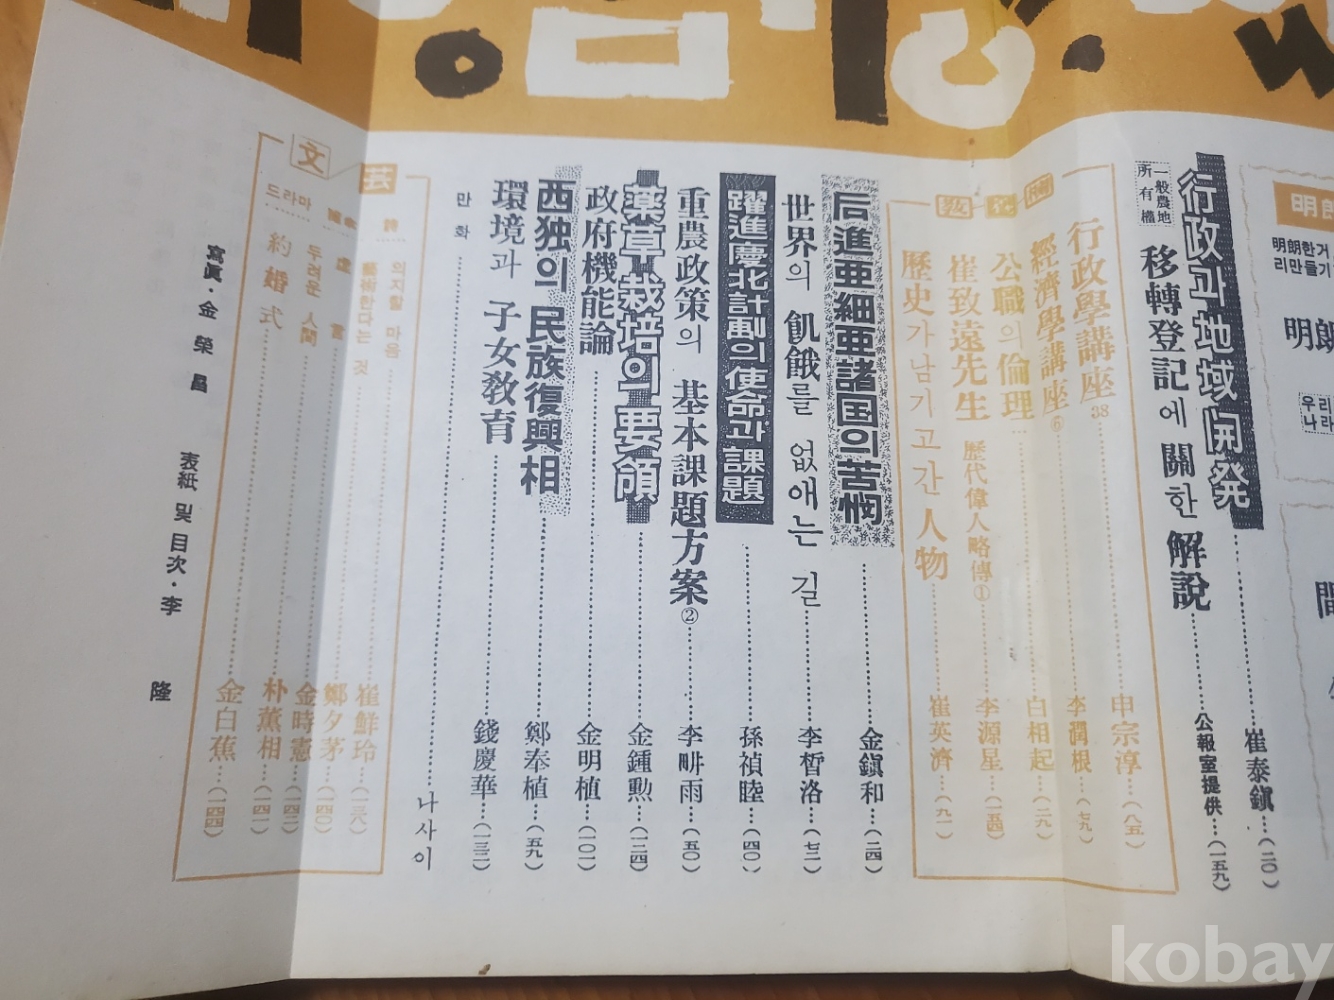 明朗한거
리만들기
明朗
우리
나라
行政과 地域開発……崔泰鎭…(二○)
一般農地
所有權
移轉登記에 關한 解說……公報室提供…(一五九)
教養欄
行政學講座 38……申宗淳…(八五)
經濟學講座 ⑥……李潤根…(七九)
公職의 倫理……白相起…(二九)
崔致遠先生 歷代偉人略傳①……李源星…(一五四)
歷史가 남기고 간 人物……崔英濟…(九一)
后進亜細亜諸国의 苦憫……金鎭和…(二四)
世界의 飢餓를 없애는 길……李晳洛…(七二)
躍進慶北計劃의 使命과 課題……孫禎睦…(四○)
重農政策의 基本課題方案②……李畊雨…(五○)
薬草栽培의 要領……金鍾勲…(一二四)
政府機能論……金明植…(一○一)
西独의 民族復興相……鄭奉植…(五九)
環境과 子女敎育……錢慶華…(一三二)
만화……나사이
文芸
詩 의지할 마음……崔鮮玲…(一三八)
藝術한다는 것……鄭夕茅…(一四○)
두려운 人間……金時憲…(一四二)
朴薰相…(一四一)
드라마 約婚式……金白蕉…(一四四)
寫眞·金榮昌 表紙 및 目次·李隆
kobay